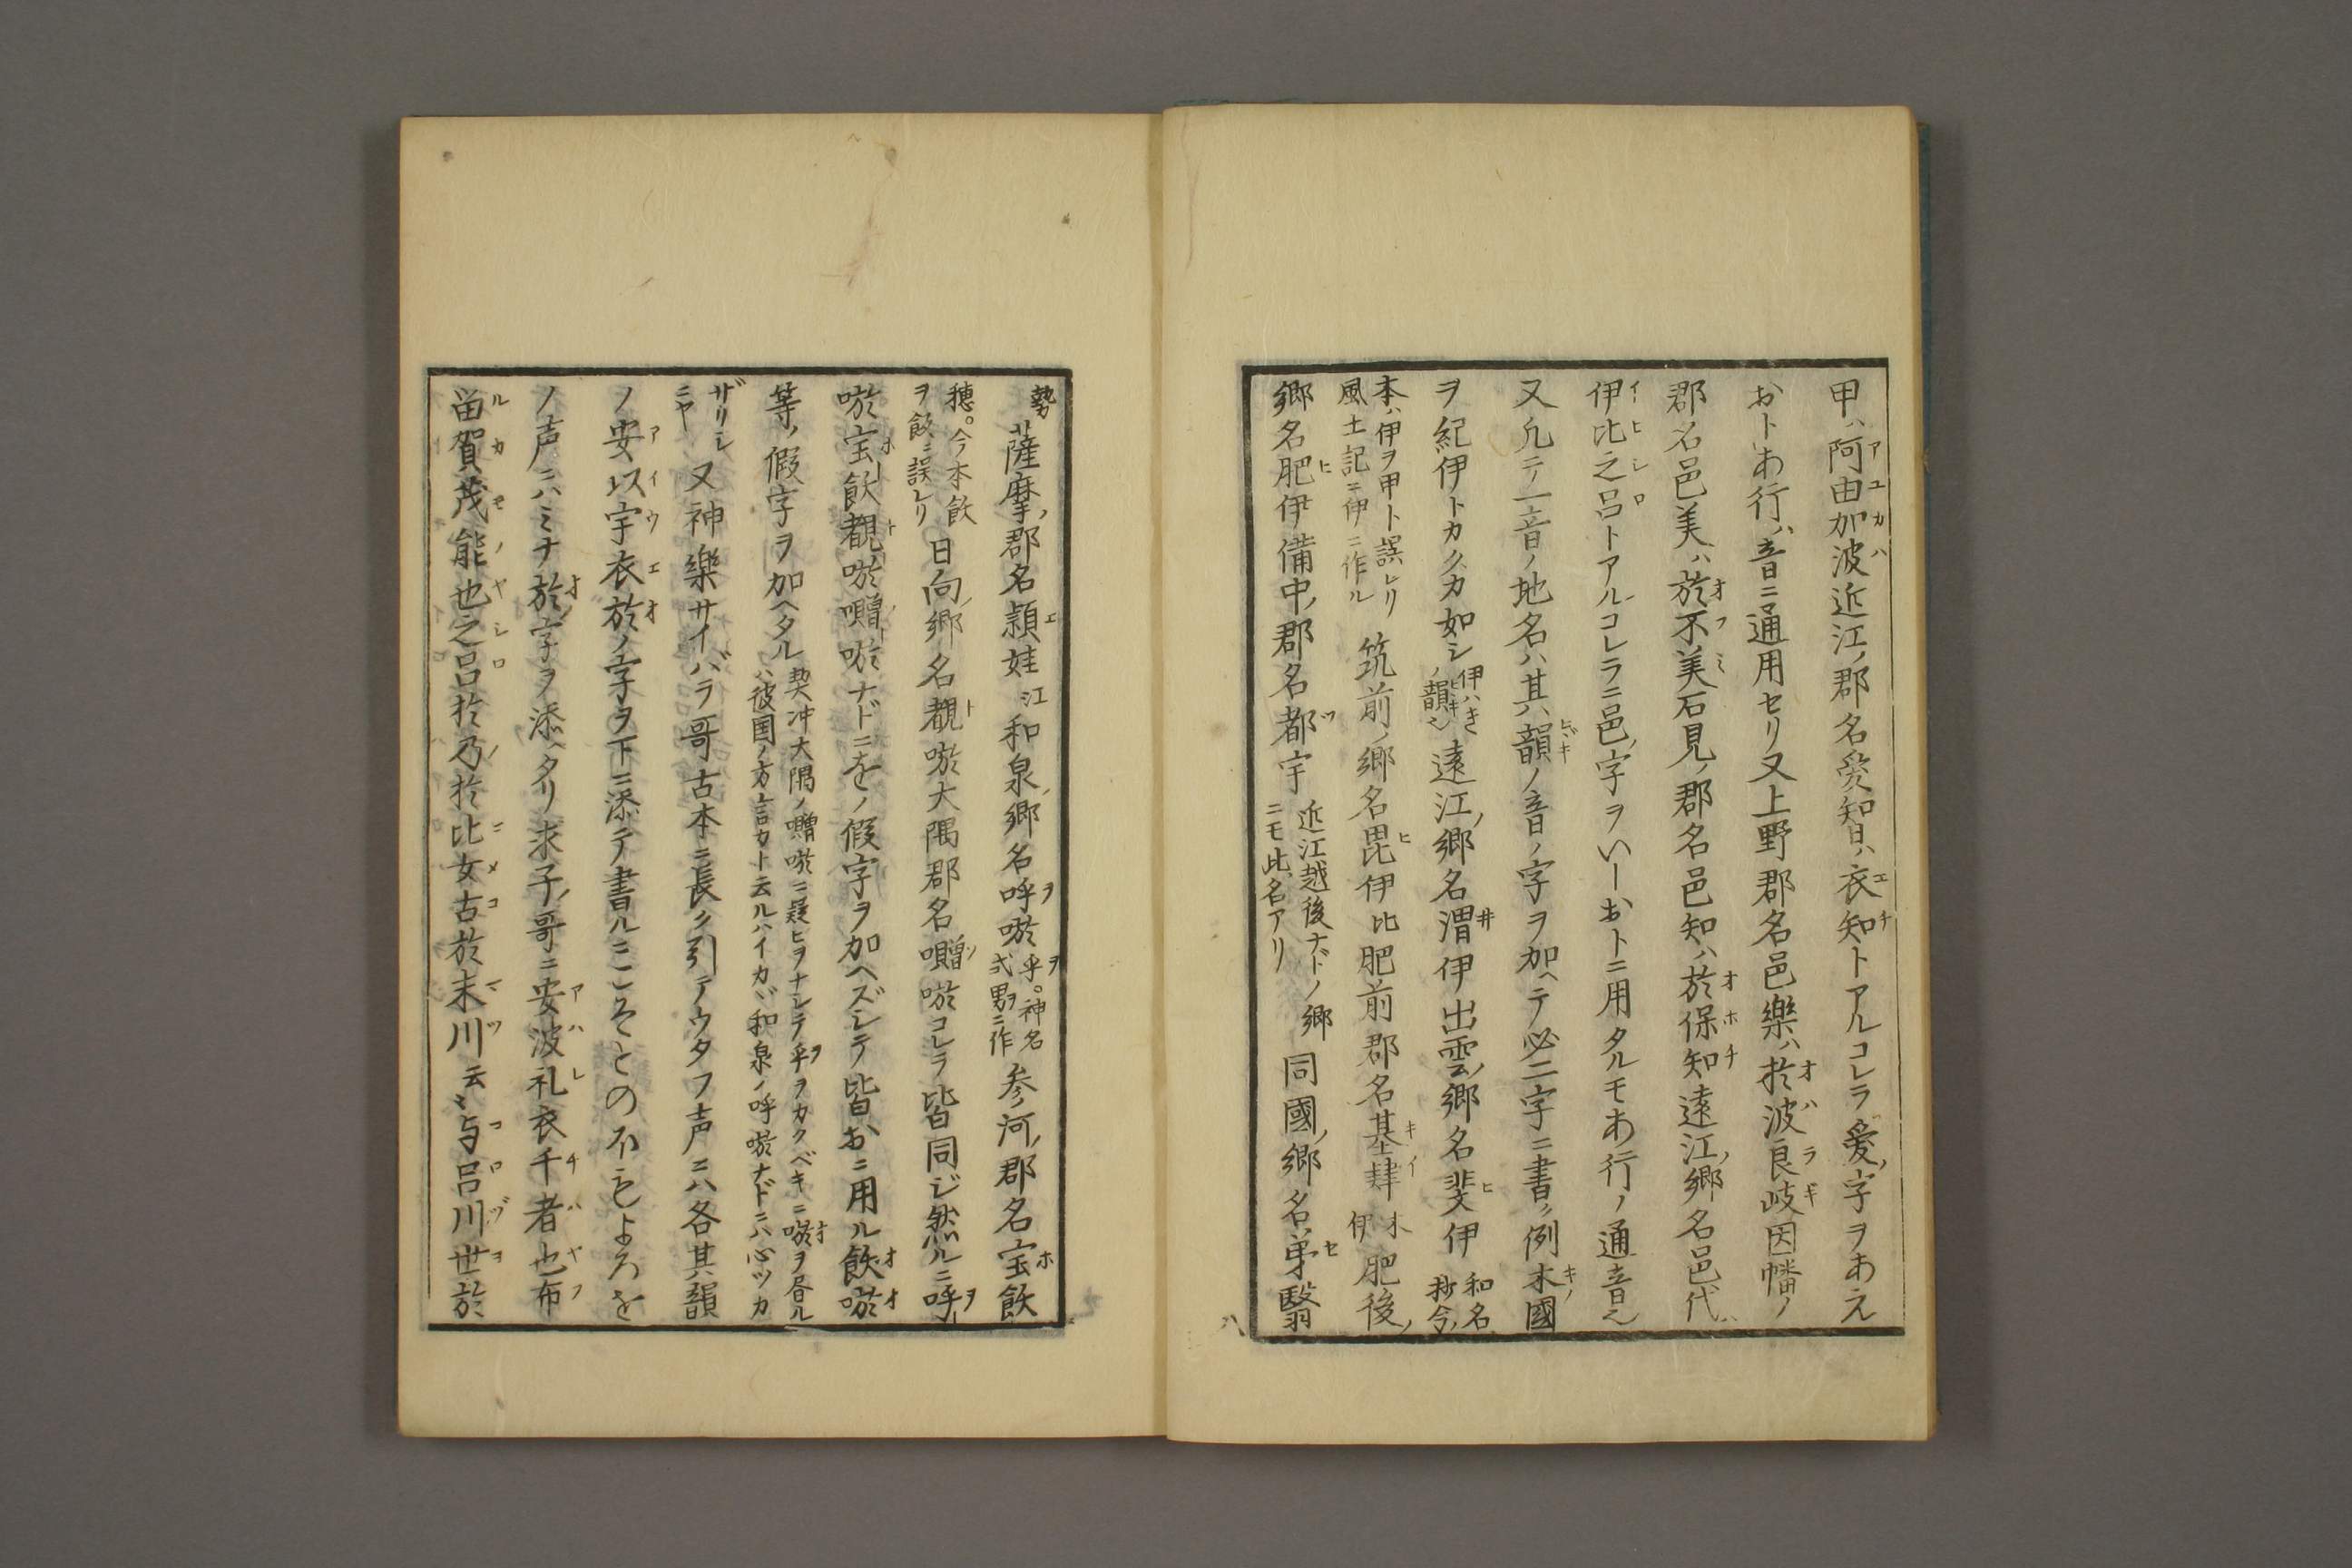 甲ハ阿由加波近江ノ郡名愛知ハ衣知トアルコレラ愛ノ字ヲあえ
おトあ行ノ音ニ通用セリ又上野郡名邑樂ハ於波良岐因幡ノ
郡名邑美ハ於不美石見ノ郡名邑知ハ於保知遠江ノ郷名邑代ハ
伊比之呂トアルコレラニ邑ノ字ヲいーおトニ用タルモあ行ノ通音也
又凡テ一音ノ地名ハ其ノ韻ノ音ノ字ヲ加ヘテ必二字ニ書ク例木國
ヲ紀伊トカクカ如シ伊ハき
ノ韻也遠江ノ郷名渭伊出雲ノ郷名斐伊和名
抄今ノ
本ハ伊ヲ甲ト誤レリ
風土記ニ伊ニ作ル筑前ノ郷名毘伊比肥前郡名基肄木
伊肥後ノ
郷名肥伊備中ノ郡名都宇近江越後ナドノ郷
ニモ此名アリ同國ノ郷名弟翳
勢薩摩ノ郡名頴娃江和泉ノ郷名呼唹乎。神名
式男ニ作参河ノ郡名宝飫
穂。今本飫
ヲ飫ニ誤レリ日向ノ郷名覩唹大隅郡名囎唹コレラ皆同ジ然ルニ呼
唹宝飫覩唹囎唹ナドニをノ假字ヲ加ヘズシテ皆おニ用ル飫唹
等ノ假字ヲ加ヘタル契冲大隅ノ囎唹ニ疑ヒヲナシテ乎ヲカクベキニ唹ヲ昼ル
ハ彼国ノ方言カト云ルハイカヾ和泉ノ呼唹ナドニハ心ツカ
ザリシ
ニヤ又神樂サイバラ哥古本ニ長ク引テウタフ声ニハ各其韻
ノ安以宇衣於ノ字ヲ下ニ添テ書ルニこそとの不もよろを
ノ声ニハミナ於ノ字ヲ添ヘタリ求子ノ哥ニ安波礼衣千者也布
留賀茂能也之呂於乃於比女古於末川云々与呂川世於